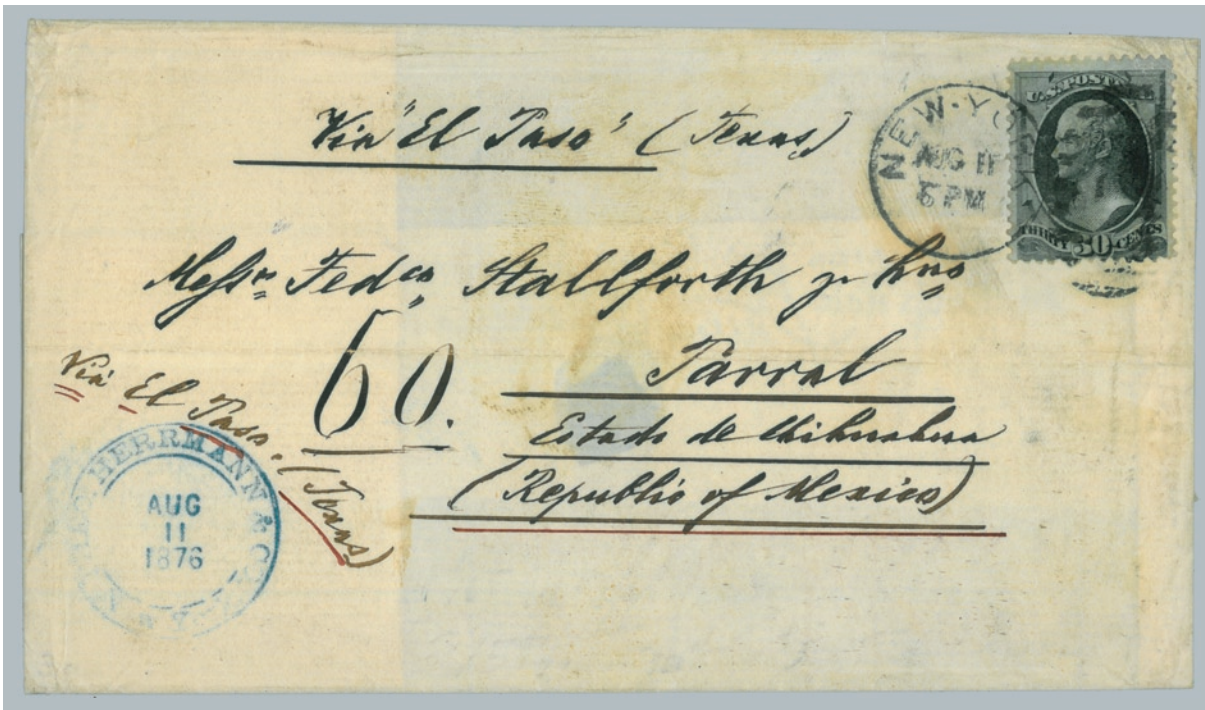 Via "El Paso" (Texas)
NEW-YO
AUG 11
6 PM
U.S. POST
THIRTY 30 CENTS
Messrs Fedco Stallforth y Hno
60.
Parral
Estado de Chihuahua
(Republic of Mexico)
Via El Paso. (Texas)
HERRMANN & CO
AUG
11
1876
N.Y.